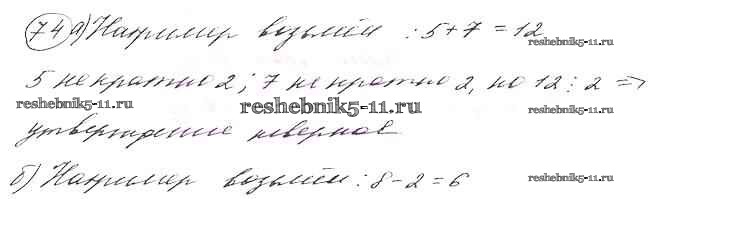 74 а) Например возьмём : 5 + 7 = 12
reshebnik5-11.ru
5 не кратно 2 ; 7 не кратно 2, но 12 ⋮ 2 =>
reshebnik5-11.ru reshebnik5-11.ru reshebnik5-11.ru
утверждение неверное
б) Например возьмём : 8 - 2 = 6 reshebnik5-11.ru